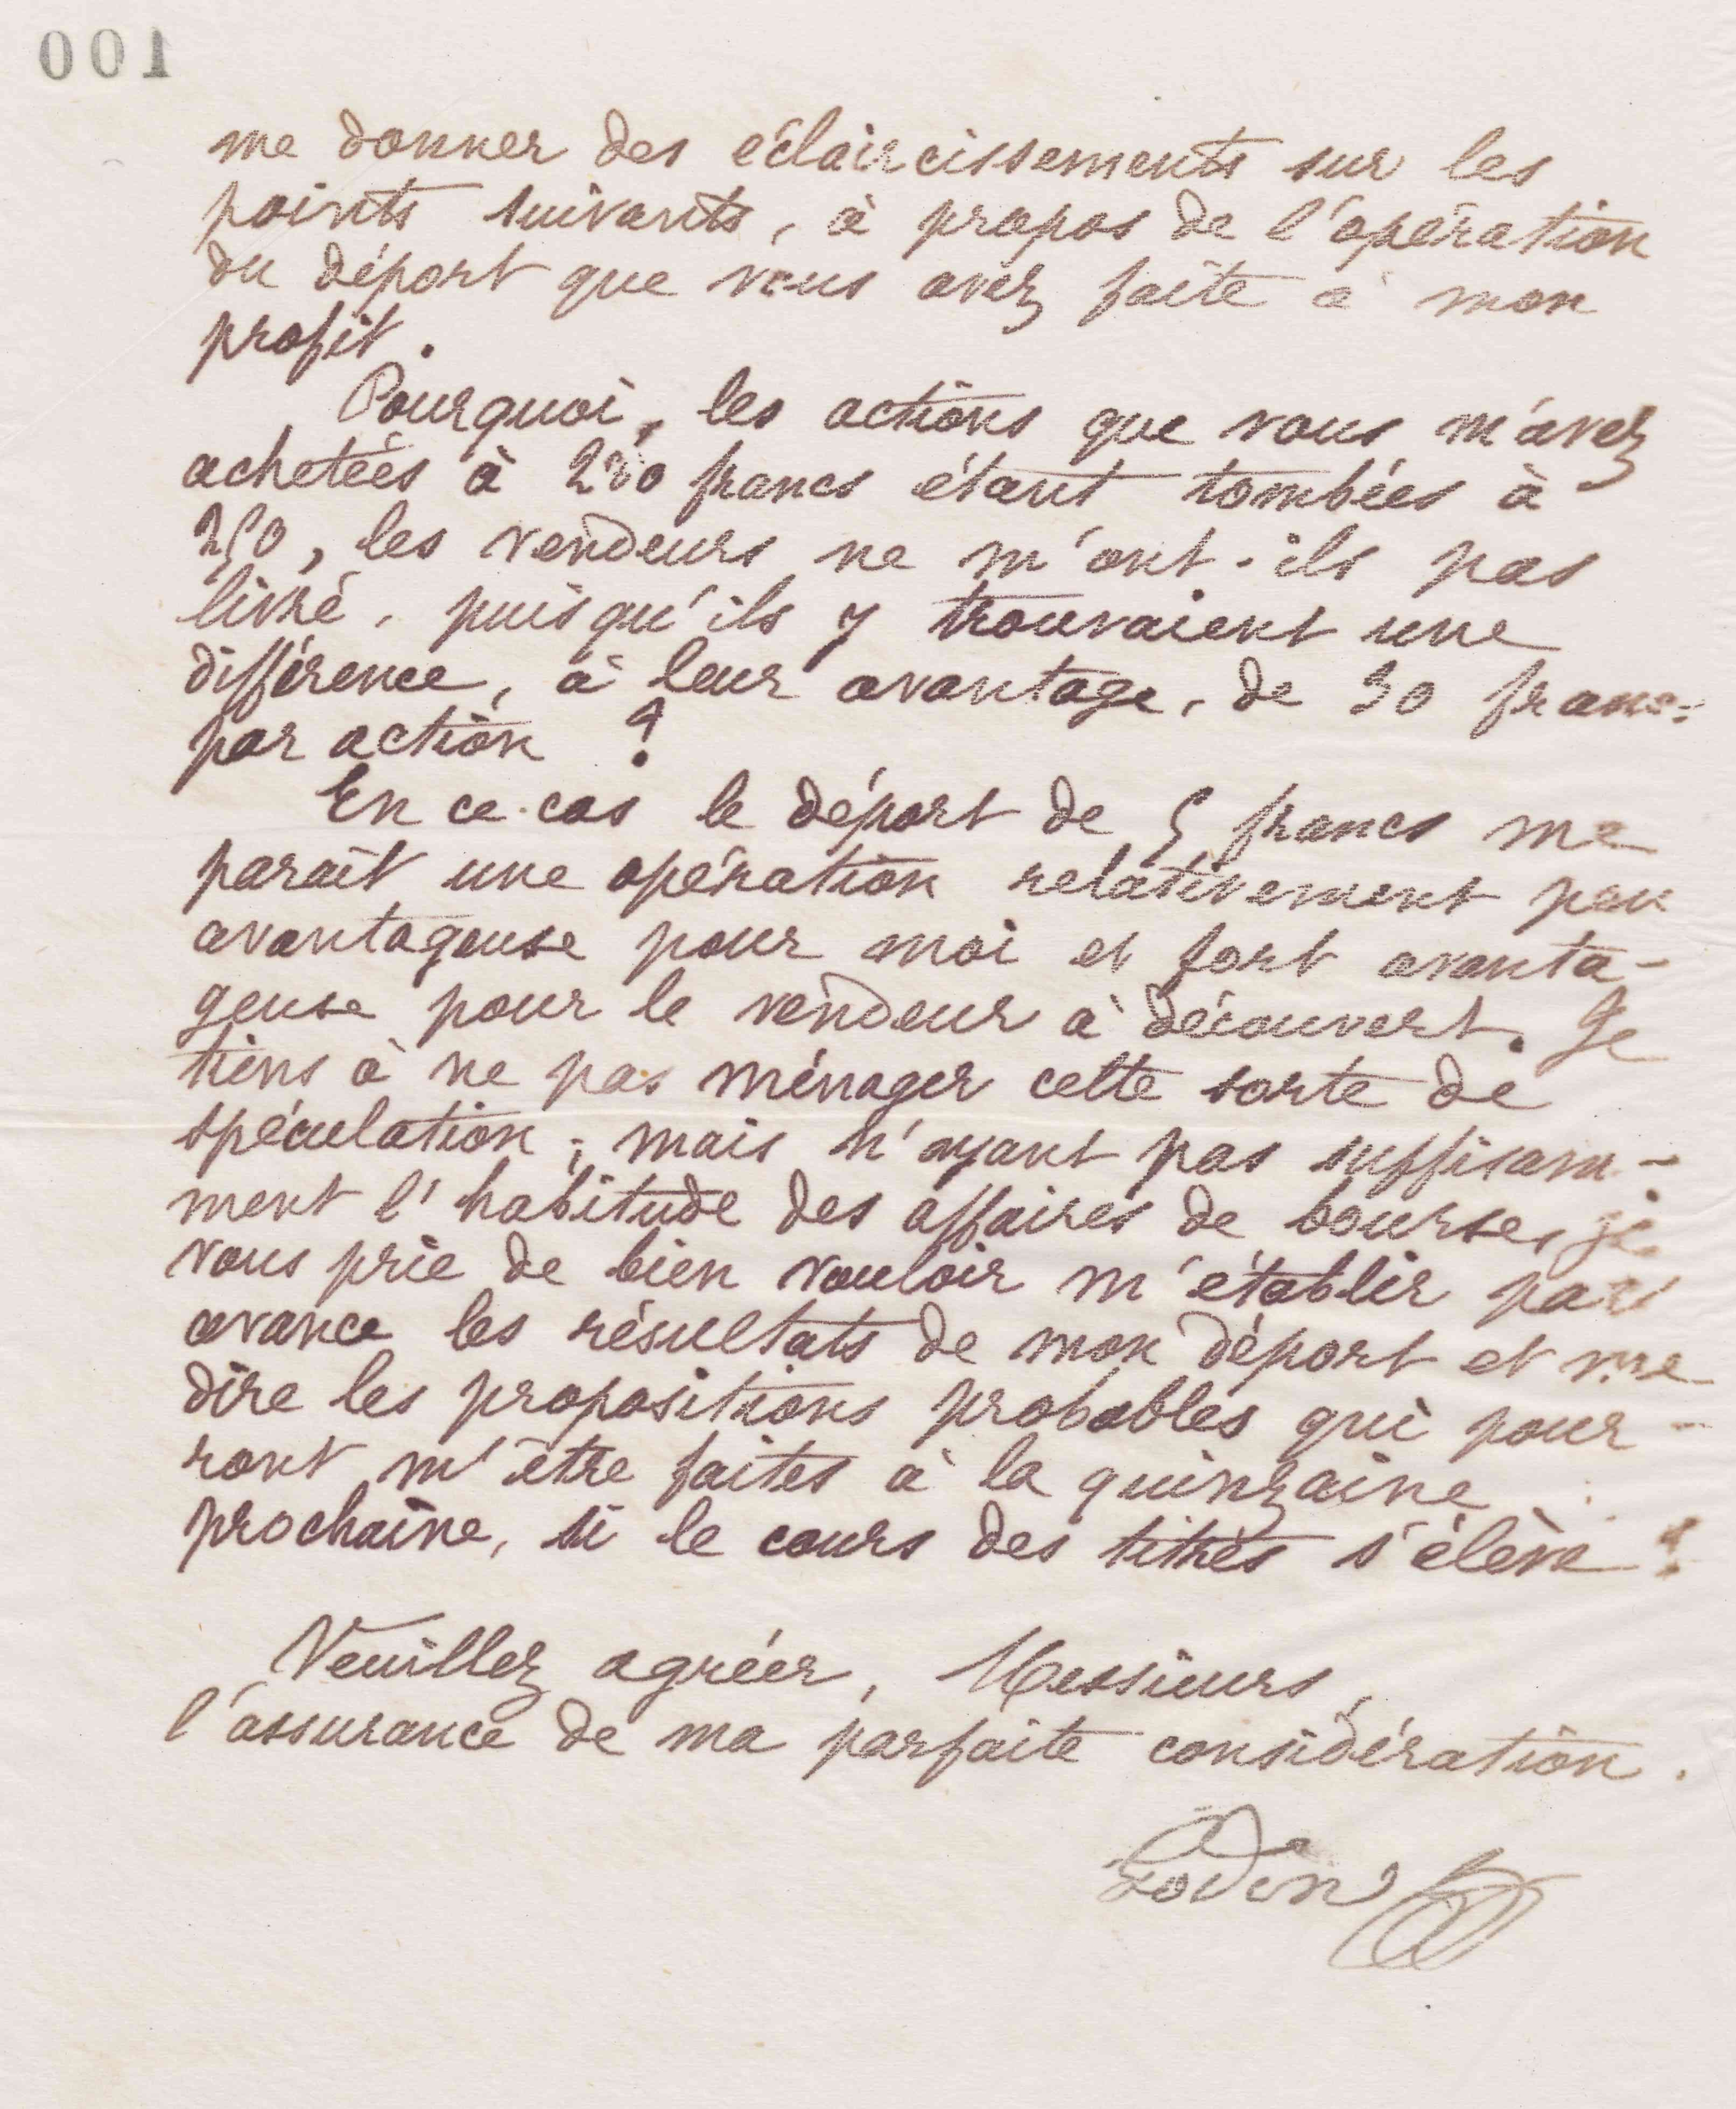 100
me donner des éclaircissements sur les
points suivants, à propos de l'opération
du déport que vous avez faite à mon
profit.
Pourquoi, les actions que vous m'avez
achetées à 280 francs étant tombées à
250, les vendeurs ne m'ont-ils pas
livré, puisqu'ils y trouvaient une
différence, à leur avantage, de 30 francs
par action ?
En ce cas le déport de 5 francs me
parait une opération relativement peu
avantageuse pour moi et fort avanta-
geuse pour le vendeur à découvert. Je
tiens à ne pas ménager cette sorte de
spéculation ; mais n'ayant pas suffisam-
ment l'habitude des affaires de bourse, je
vous prie de bien vouloir m'établir par
avance les résultats de mon déport et me
dire les propositions probables qui pour-
ront m'être faites à la quinzaine
prochaine, si le cours des titres s'élève ?
Veuillez agréer, Messieurs,
l'assurance de ma parfaite considération.
Godin